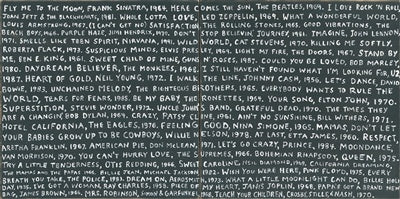 FLY ME TO THE MOON, FRANK SINATRA, 1964. HERE COMES THE SUN, THE BEATLES, 1969. I LOVE ROCK N ROLL,
JOAN JETT & THE BLACKHEARTS, 1981. WHOLE LOTTA LOVE, LED ZEPPELIN, 1969. WHAT A WONDERFUL WORLD,
LOUIS ARMSTRONG, 1967. (I CAN'T GET NO) SATISFACTION, THE ROLLING STONES, 1965. GOOD VIBRATIONS, THE
BEACH BOYS, 1966. PURPLE HAZE, JIMI HENDRIX, 1970. DON'T STOP BELIEVIN' JOURNEY, 1981. IMAGINE, JOHN LENNON,
1971. SMELLS LIKE TEEN SPIRIT, NIRVANA, 1991. WILD WORLD, CAT STEVENS, 1970. KILLING ME SOFTLY,
ROBERTA FLACK, 1973. SUSPICIOUS MINDS, ELVIS PRESLEY, 1969. LIGHT MY FIRE, THE DOORS, 1967. STAND BY
ME, BEN E. KING, 1961. SWEET CHILD OF MINE, GUNS N' ROSES, 1987. COULD YOU BE LOVED, BOB MARLEY,
1980. DAYDREAM BELIEVER, THE MONKEES, 1966. I STILL HAVEN'T FOUND WHAT I'M LOOKING FOR, U2,
1987. HEART OF GOLD, NEIL YOUNG, 1972. I WALK THE LINE, JOHNNY CASH, 1956. LET'S DANCE, DAVID
BOWIE, 1983. UNCHAINED MELODY, THE RIGHTEOUS BROTHERS, 1965. EVERYBODY WANTS TO RULE THE
WORLD, TEARS FOR FEARS, 1985. BE MY BABY, THE RONETTES, 1963. YOUR SONG, ELTON JOHN, 1970.
SUPERSTITION, STEVIE WONDER, 1972. UNCLE JOHN'S BAND, GRATEFUL DEAD, 1970. THE TIMES THEY
ARE A CHANGIN', BOB DYLAN, 1964. CRAZY, PATSY CLINE, 1961. AIN'T NO SUNSHINE, BILL WITHERS, 1971.
HOTEL CALIFORNIA, THE EAGLES, 1976. FEELING GOOD, NINA SIMONE, 1965. MAMAS, DON'T LET
YOUR BABIES GROW UP TO BE COWBOYS, WILLIE NELSON, 1978. AT LAST, ETTA JAMES, 1960. RESPECT,
ARETHA FRANKLIN, 1967. AMERICAN PIE, DON MCLEAN, 1971. LET'S GO CRAZY, PRINCE, 1984. MOONDANCE,
VAN MORRISON, 1970. YOU CAN'T HURRY LOVE, THE SUPREMES, 1966. BOHEMIAN RHAPSODY, QUEEN, 1975.
TRY A LITTLE TENDERNESS, OTIS REDDING, 1966. SWEET CAROLINE, NEIL DIAMOND, 1969. CALIFORNIA DREAMING,
THE MAMAS AND THE PAPAS 1966. BILLIE JEAN, MICHAEL JACKSON, 1982. WISH YOU WERE HERE, PINK FLOYD, 1975. EVERY
BREATH YOU TAKE, THE POLICE, 1983. DREAM ON, AEROSMITH, 1973. WHAT A LITTLE MOONLIGHT CAN DO, BILLIE HOLIDAY
DAY, 1935. I'VE GOT A WOMAN, RAY CHARLES, 1958. PIECE OF MY HEART, JANIS JOPLIN, 1968. PAPA'S GOT A BRAND NEW
BAG, JAMES BROWN, 1965. MRS. ROBINSON, SIMON & GARFUNKEL, 1968. TEACH YOUR CHILDREN, CROSBY, STILLS, & NASH, 1970.